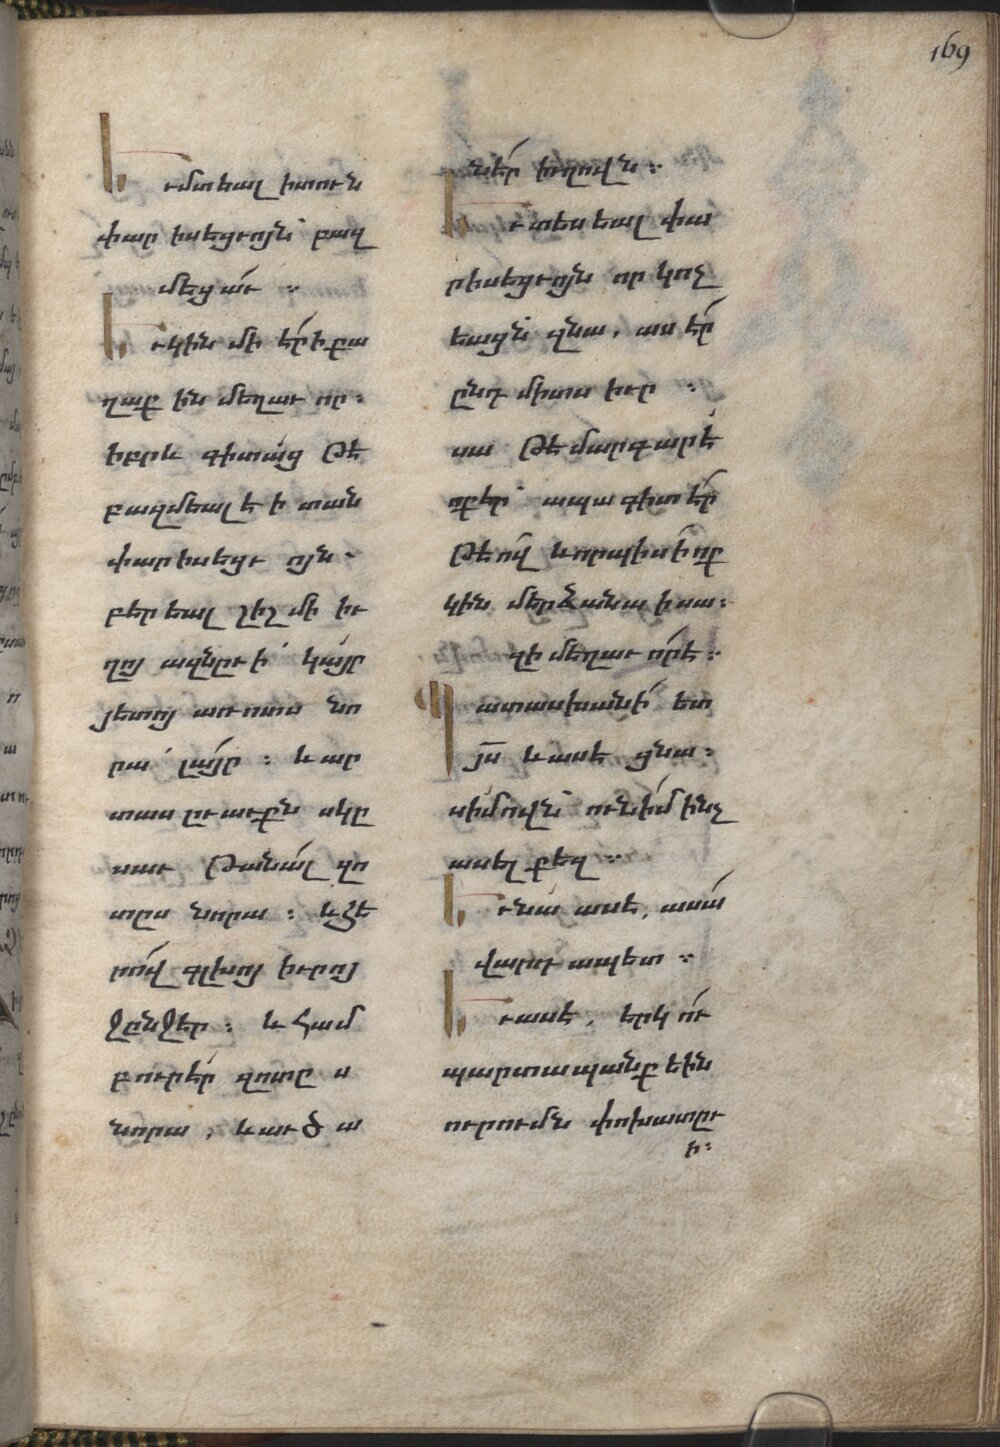 169
Եւ մտեալ ի տուն
փարիսեցւոյն՝ բազ
մեցաւ ։
Եւ կին մի էր ի քա
ղաքին մեղաւոր։
իբրև գիտաց թէ
բազմեալ է ի տան
փարիսեցւոյն՝
բերեալ շիշ մի իւ
ղոյ ազնըւի՝ կայր
յետոյ առ ոտս նո
րա՝ լայր ։ և ար
տասըւաւքն սկը
սաւ թանալ զո
տըս նորա ։ և հե
րով գլխոյ իւրոյ
ջընջէր ։ և համ
բուրէր զոտըս
նորա , և աւծա
նէր իւղովն ։
Եւ տեսեալ փա
րիսեցւոյն որ կոչ
եացն՝ զնա , ասէր
ընդ միտս իւր ։
սա թե մարգարէ
ոք էր՝ ապա գիտէր
թէ ով և որպիսի ոք
կին մերձանայ ի սա։
զի մեղաւոր է ։
Պատասխանի ետ
յս և ասէ ցնա։
սիմովն՝ ունիմ ինչ
ասել քեզ ։
Եւ նա ասէ , ասա
վարդապետ ։
Եւ ասէ , երկու
պարտապանք էին
ուրումն փոխատըւ
ի։